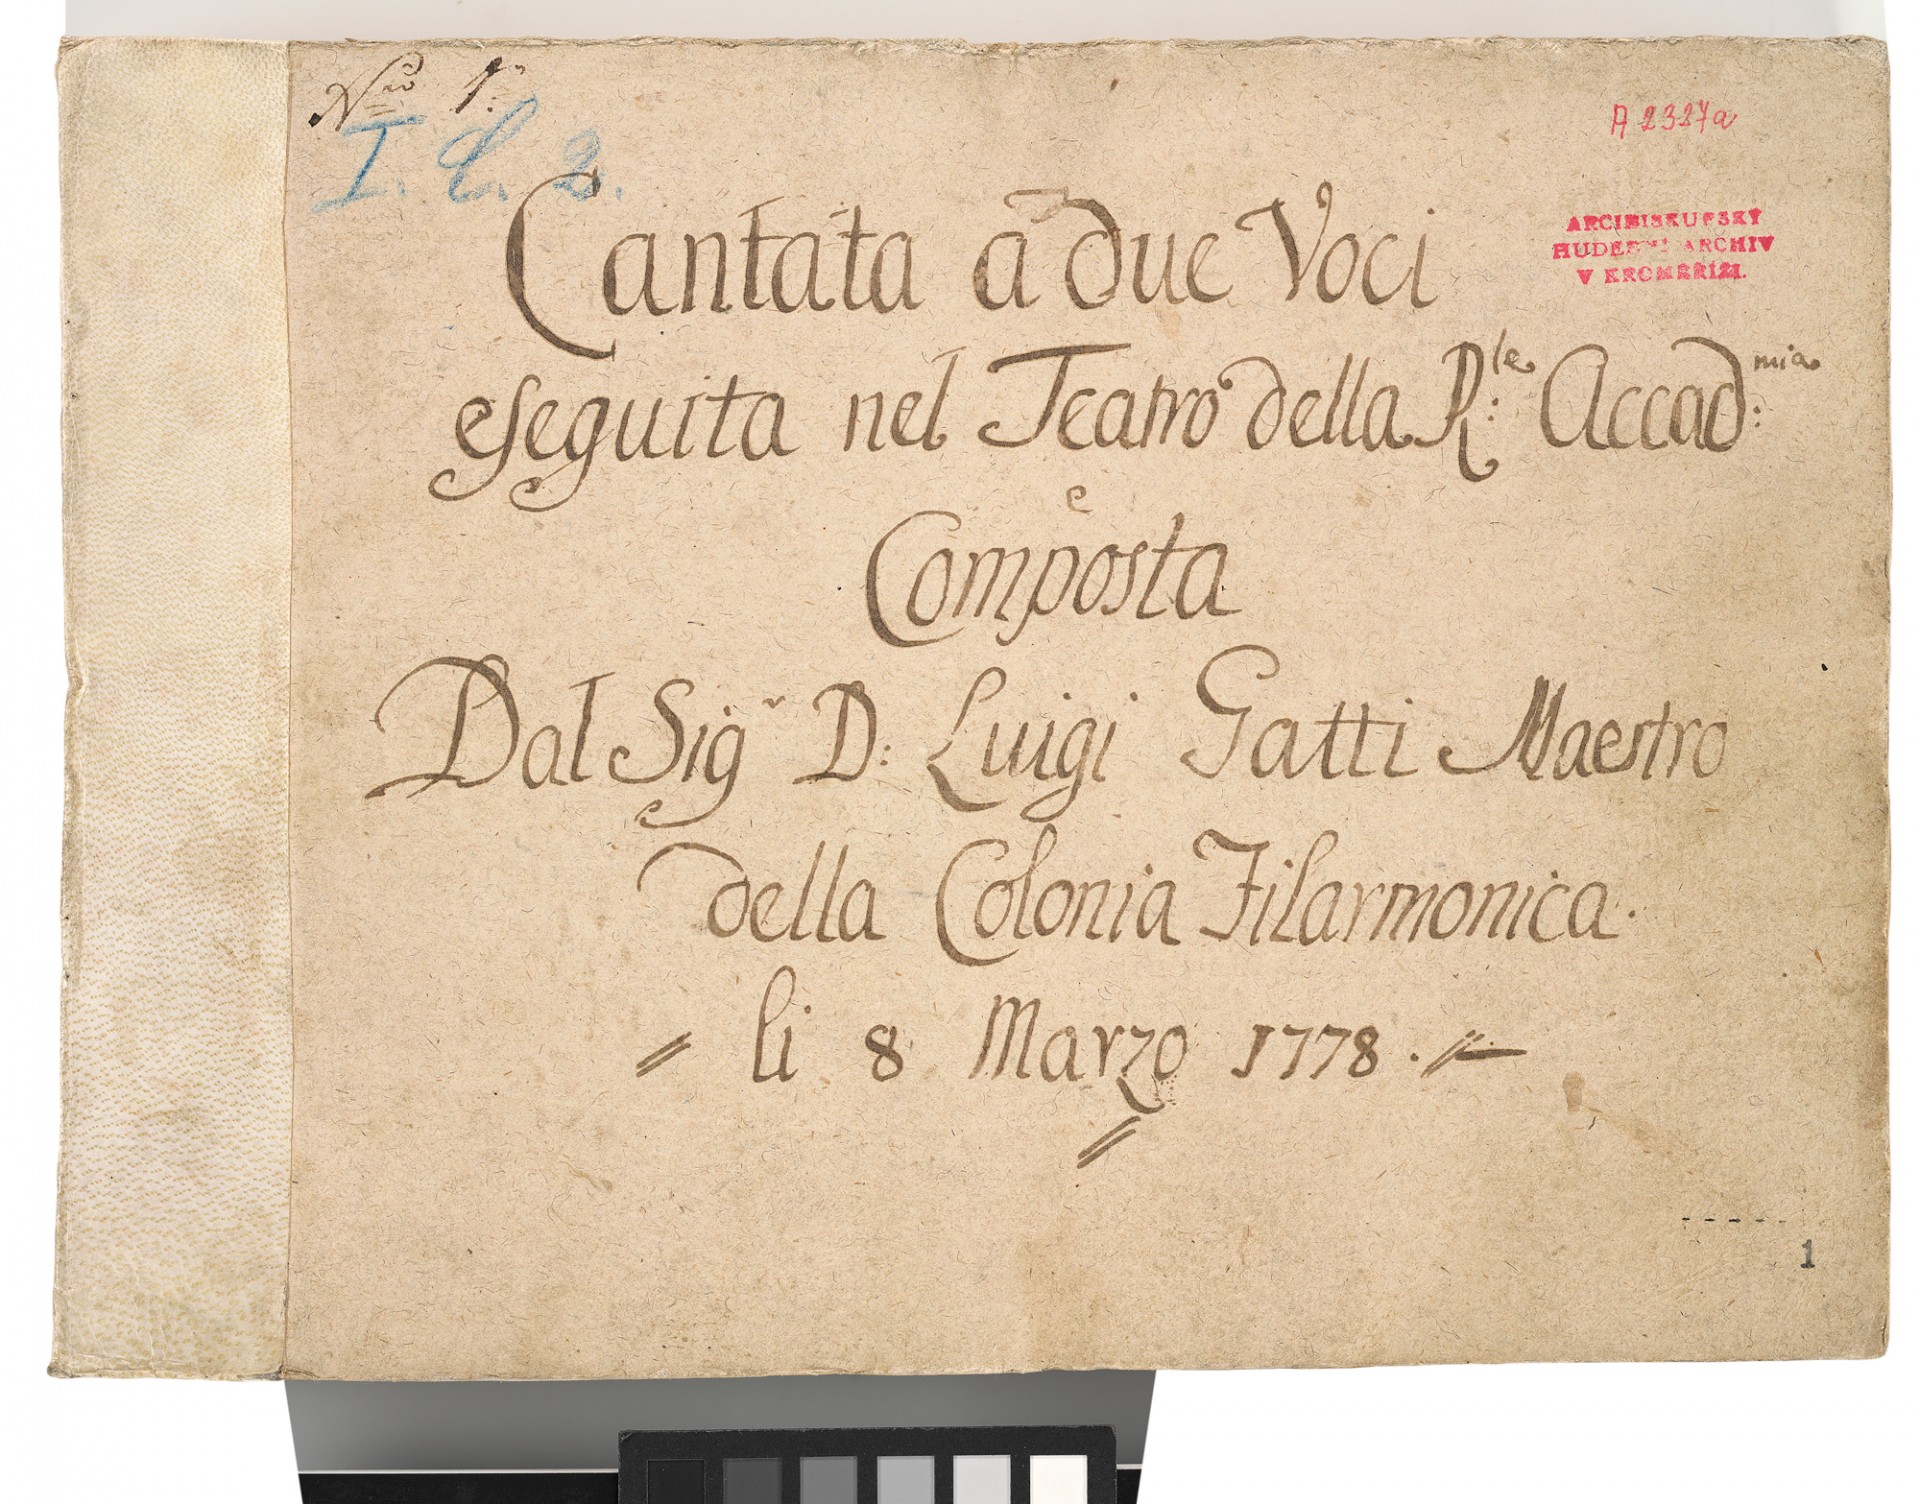 Nro 1.
I. C. 2.
A 2327a
ARCIBISKUPSKÝ
HUDEBNÍ ARCHIV
V KROMĚŘÍŽI.
Cantata a due Voci
eseguita nel Teatro della R:le Accad:mia
e
Composta
Dal Sigr D: Luigi Gatti Maestro
della Colonia Filarmonica.
li 8 Marzo 1778.
1